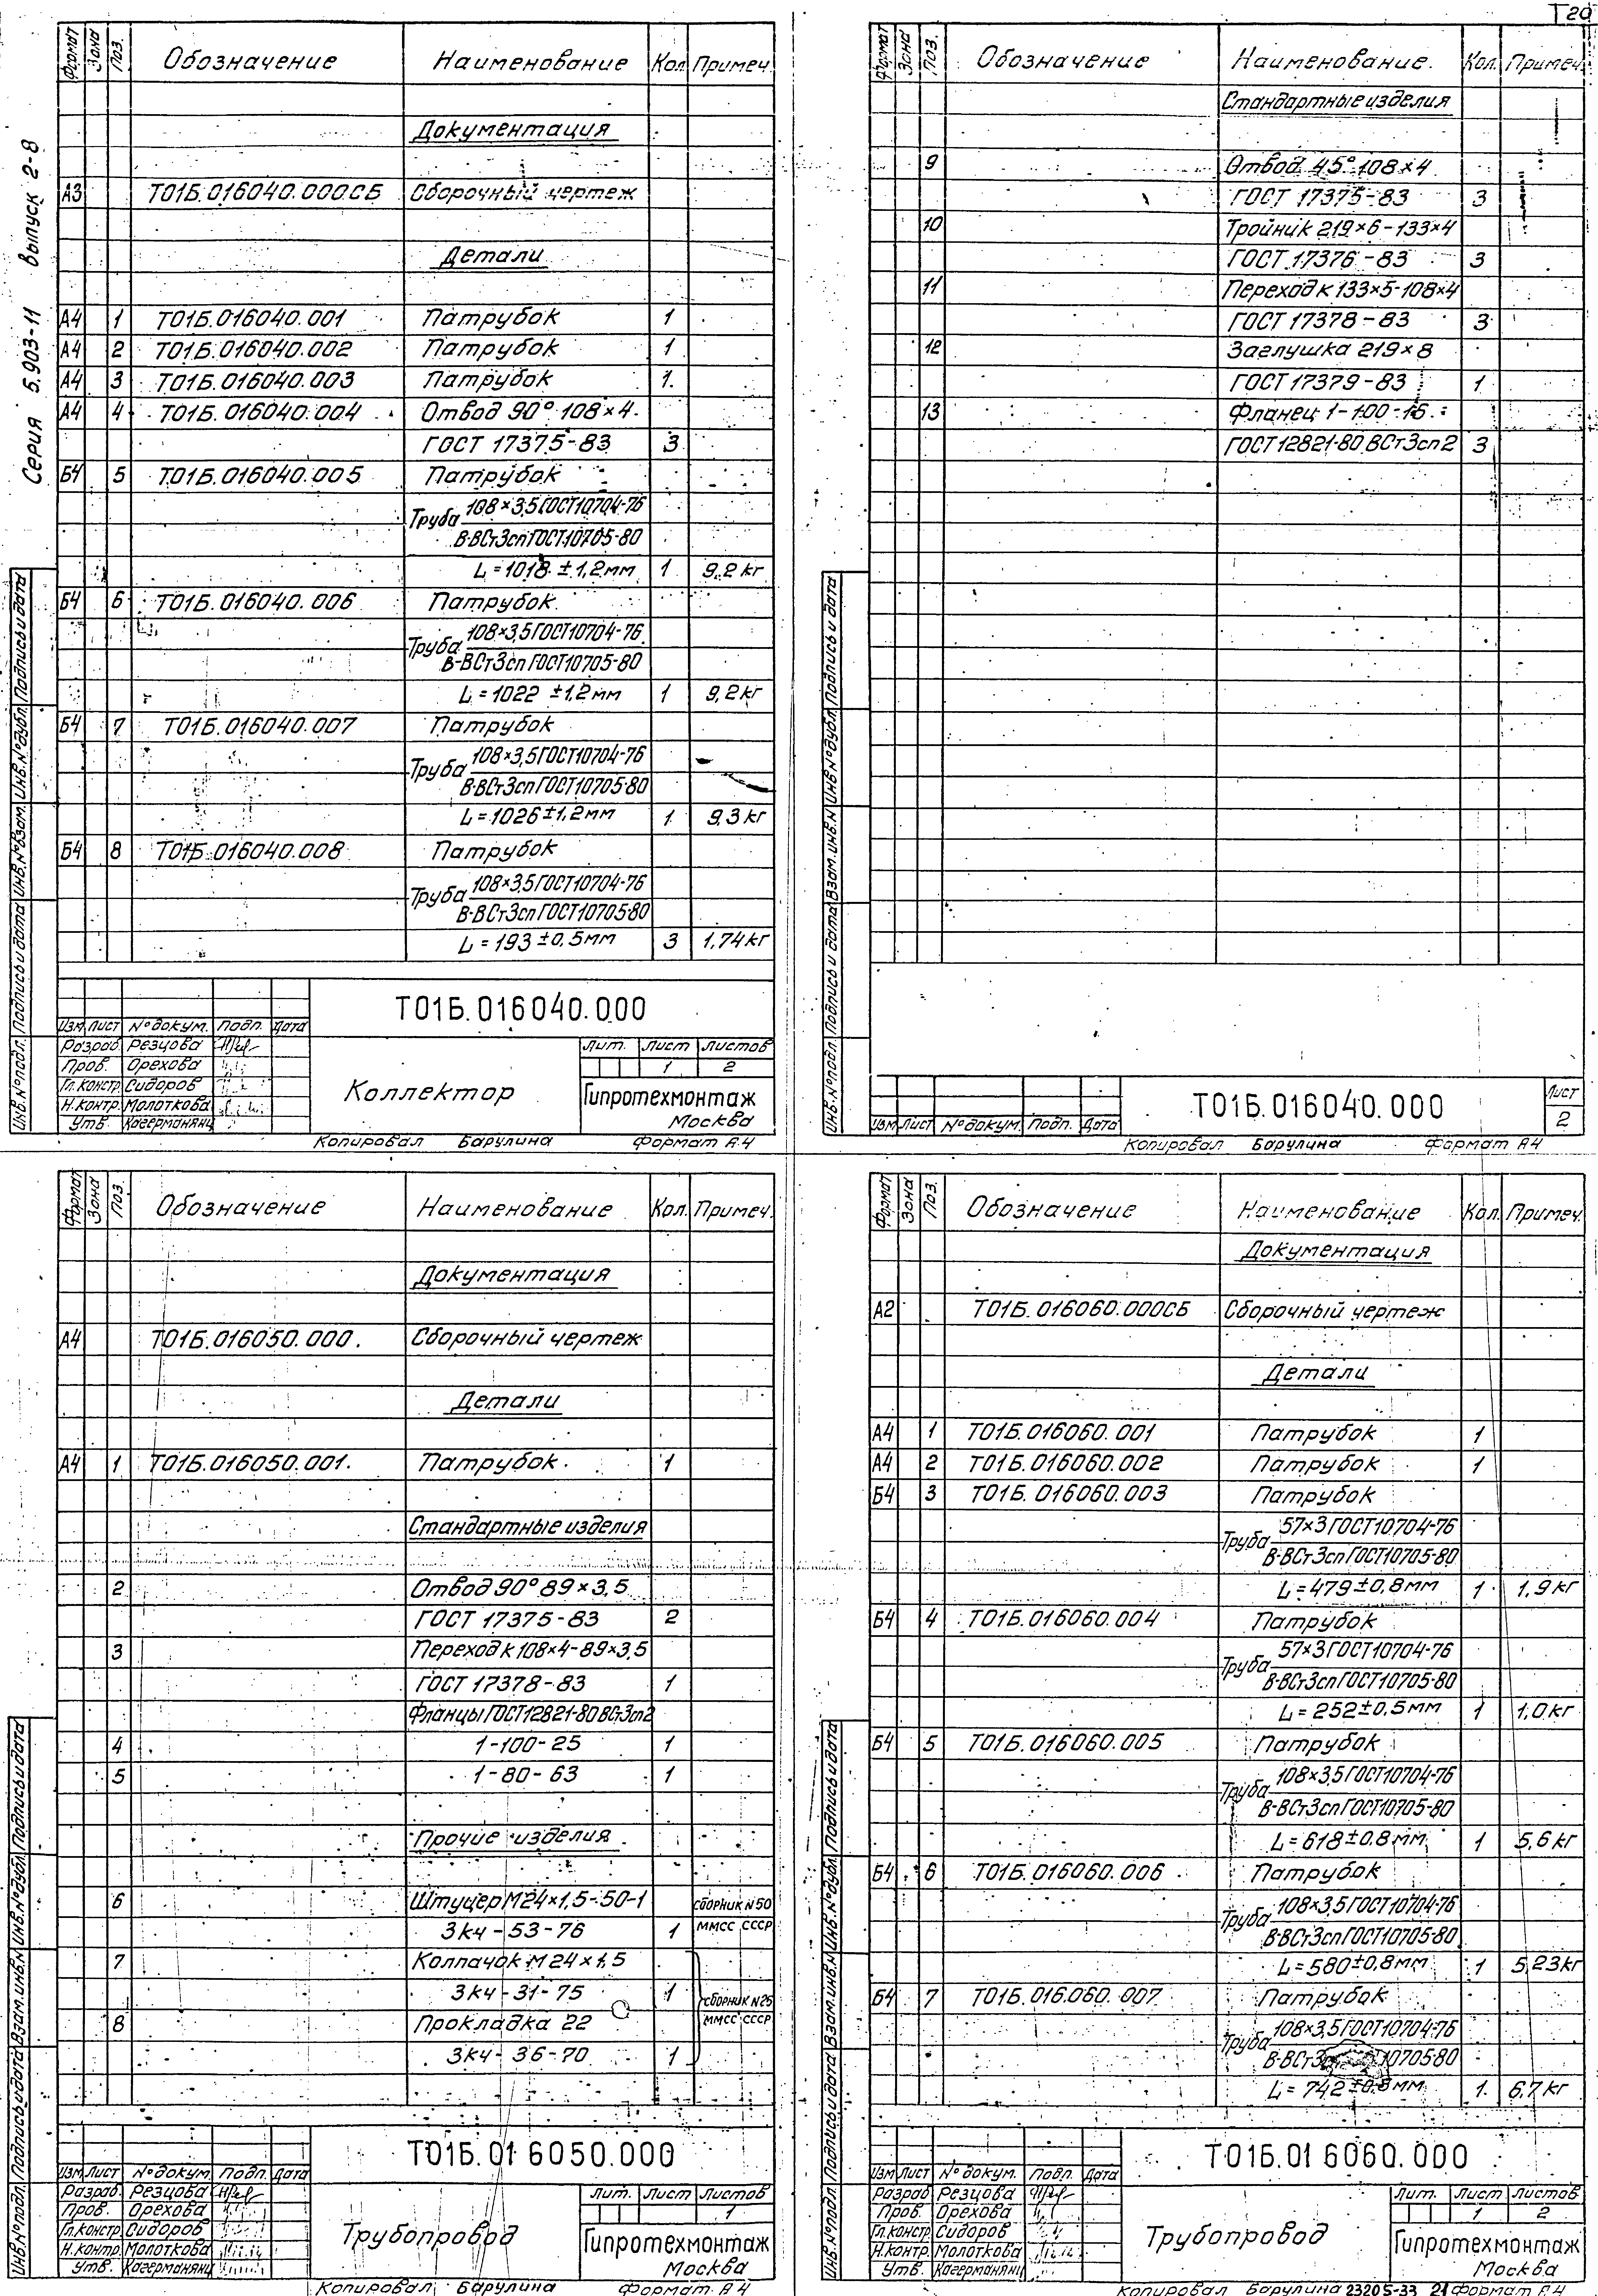 Т20
Серия 5.903-11 выпуск 2-8
Формат Зона Поз. Обозначение Наименование Кол. Примеч.
Документация
А3 Т01Б.016040.000СБ Сборочный чертеж
Детали
А4 1 Т01Б.016040.001 Патрубок 1
А4 2 Т01Б.016040.002 Патрубок 1
А4 3 Т01Б.016040.003 Патрубок 1
А4 4 Т01Б.016040.004 Отвод 90° 108×4
ГОСТ 17375-83 3
Б4 5 Т01Б.016040.005 Патрубок
Труба 108×3,5 ГОСТ 10704-76
В-ВСт3сп ГОСТ 10705-80
L=1018 ±1,2мм 1 9,2 кг
Б4 6 Т01Б.016040.006 Патрубок
Труба 108×3,5 ГОСТ 10704-76
В-ВСт3сп ГОСТ 10705-80
L=1022 ±1,2мм 1 9,2кг
Б4 7 Т01Б.016040.007 Патрубок
Труба 108×3,5 ГОСТ 10704-76
В-ВСт3сп ГОСТ 10705-80
L=1026±1,2мм 1 9,3 кг
Б4 8 Т01Б.016040.008 Патрубок
Труба 108×3,5 ГОСТ 10704-76
В-ВСт3сп ГОСТ 10705-80
L=193 ±0,5мм 3 1,74кг
Инв.№подл. Подпись и дата Взам.инв.№ Инв.№дубл. Подпись и дата
Т01Б.016040.000
Изм Лист №докум. Подп. Дата
Разраб. Резцова
Пров. Орехова
Гл.констр. Сидоров
Н.контр. Молоткова
Утв. Кагерманянц
Коллектор
Лит. Лист Листов
1 2
Гипротехмонтаж
Москва
Копировал Барулина Формат А4
Формат Зона Поз. Обозначение Наименование. Кол. Примеч.
Стандартные изделия
9 Отвод 45° 108×4
ГОСТ 17375-83 3
10 Тройник 219×6-133×4
ГОСТ 17376-83 3
11 Переход к 133×5-108×4
ГОСТ 17378-83 3
12 Заглушка 219×8
ГОСТ 17379-83 1
13 Фланец 1-100-16
ГОСТ 12821-80 ВСт3сп2 3
Инв.№подл. Подпись и дата Взам.инв.№ Инв.№дубл. Подпись и дата
Изм Лист №докум. Подп. Дата
Т01Б.016040.000
Лист
2
Копировал Барулина Формат А4
Формат Зона Поз. Обозначение Наименование Кол. Примеч.
Документация
А4 Т01Б.016050.000. Сборочный чертеж
Детали
А4 1 Т01Б.016050.001. Патрубок 1
Стандартные изделия
2 Отвод 90° 89×3,5
ГОСТ 17375-83 2
3 Переход к 108×4-89×3,5
ГОСТ 17378-83 1
Фланцы ГОСТ 12821-80 ВСт3сп2
4 1-100-25 1
5 1-80-63 1
Прочие изделия
6 Штуцер М24×1,5-50-1 сборник N50
3кч-53-76 1 ММСС СССР
7 Колпачок М24×1,5
3кч-31-75 1 сборник N25
8 Прокладка 22 ММСС СССР
3кч-36-70 1
Инв.№подл. Подпись и дата Взам.инв.№ Инв.№дубл. Подпись и дата
Т01Б.016050.000
Изм Лист №докум. Подп. Дата
Разраб. Резцова
Пров. Орехова
Гл.констр. Сидоров
Н.контр. Молоткова
Утв. Кагерманянц
Трубопровод
Лит. Лист Листов
1
Гипротехмонтаж
Москва
Копировал Барулина Формат А4
Формат Зона Поз. Обозначение Наименование Кол. Примеч.
Документация
А2 Т01Б.016060.000СБ Сборочный чертеж
Детали
А4 1 Т01Б.016060.001 Патрубок 1
А4 2 Т01Б.016060.002 Патрубок 1
Б4 3 Т01Б.016060.003 Патрубок
Труба 57×3 ГОСТ 10704-76
В-ВСт3сп ГОСТ 10705-80
L=479±0,8мм 1 1,9кг
Б4 4 Т01Б.016060.004 Патрубок
Труба 57×3 ГОСТ 10704-76
В-ВСт3сп ГОСТ 10705-80
L=252±0,5мм 1 1,0кг
Б4 5 Т01Б.016060.005 Патрубок
Труба 108×3,5 ГОСТ 10704-76
В-ВСт3сп ГОСТ 10705-80
L=618±0,8мм 1 5,6кг
Б4 6 Т01Б.016060.006 Патрубок
Труба 108×3,5 ГОСТ 10704-76
В-ВСт3сп ГОСТ 10705-80
L=580±0,8мм 1 5,23кг
Б4 7 Т01Б.016060.007 Патрубок
Труба 108×3,5 ГОСТ 10704-76
В-ВСт3 10705-80
L=742±0,8мм 1 6,7кг
Инв.№подл. Подпись и дата Взам.инв.№ Инв.№дубл. Подпись и дата
Т01Б.016060.000
Изм Лист №докум. Подп. Дата
Разраб. Резцова
Пров. Орехова
Гл.констр. Сидоров
Н.контр. Молоткова
Утв. Кагерманянц
Трубопровод
Лит. Лист Листов
1 2
Гипротехмонтаж
Москва
Копировал Барулина 23205-33 21 Формат А4